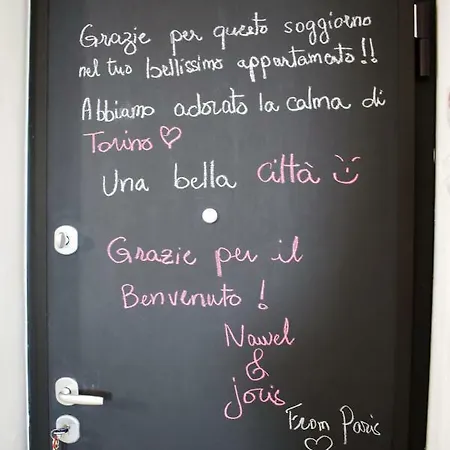 Grazie per questo soggiorno
nel tuo bellissimo appartamento!!
Abbiamo adorato la calma di
Torino ♡
Una bella città :)
Grazie per il
Benvenuto !
Nawel
&
Joris
From Paris
♡